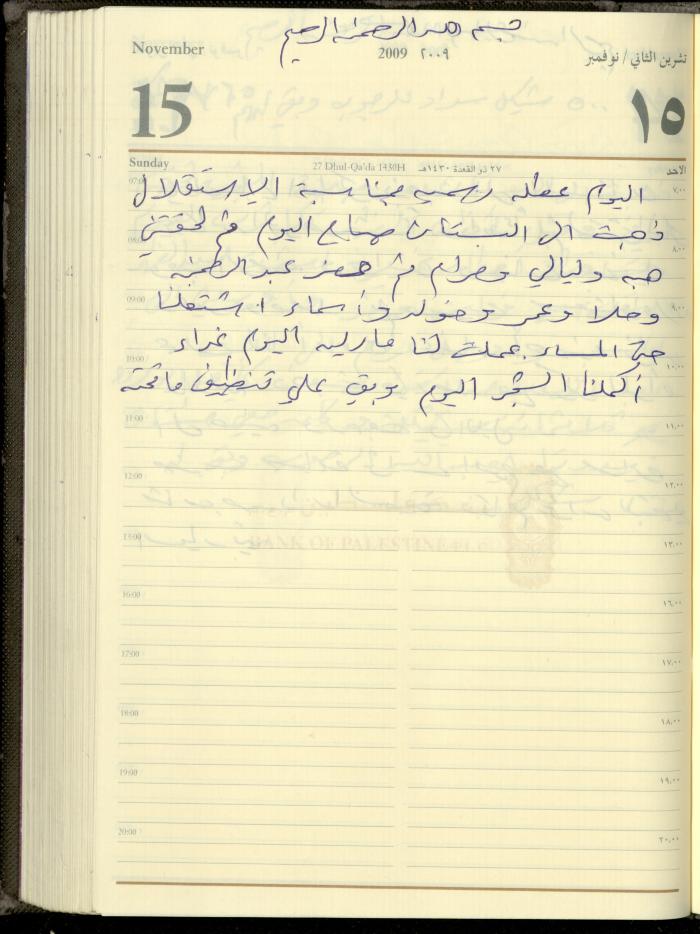 بسم الله الرحمن الرحيم
November
2009 ٢٠٠٩
تشرين الثاني / نوفمبر
15
١٥
Sunday
27 Dhul-Qa'da 1430H ٢٧ ذو القعدة ١٤٣٠هـ
الاحد
اليوم عطله رسميه بمناسبة الاستقلال
ذهبت الى البستان صباح اليوم ثم لحقتني
هبه وليالي ومرام ثم حضر عبد الرحمن
وحلا وعمر وخولد وأسماء اشتغلنا
حتى المساء عملت لنا مارلين اليوم غداء
أكملنا الشجر اليوم وبقي علي تنظيف ما تحته
07:00
٧,٠٠
08:00
٨,٠٠
09:00
٩,٠٠
10:00
١٠,٠٠
11:00
١١,٠٠
12:00
١٢,٠٠
13:00
١٣,٠٠
BANK OF PALESTINE
16:00
١٦,٠٠
17:00
١٧,٠٠
18:00
١٨,٠٠
19:00
١٩,٠٠
20:00
٢٠,٠٠